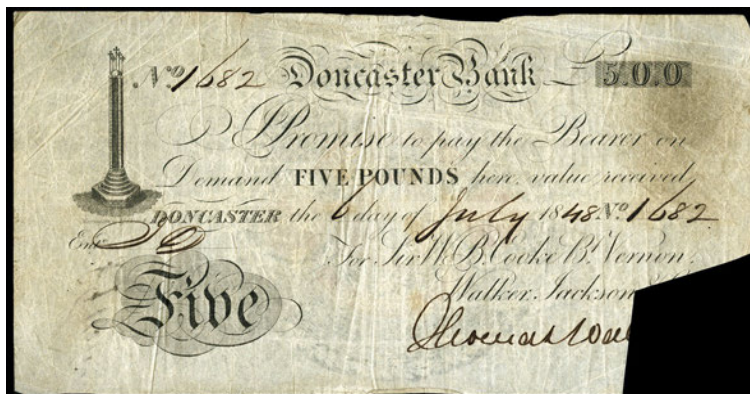 No 1682 Doncaster Bank £ 5.0.0
I Promise to pay the Bearer on
Demand FIVE POUNDS here, value received
DONCASTER the 6 day of July 1848 No 1682
Entd
For Sir W. B. Cooke Bt Vernon,
Walker, Jackson
Five
Thomas